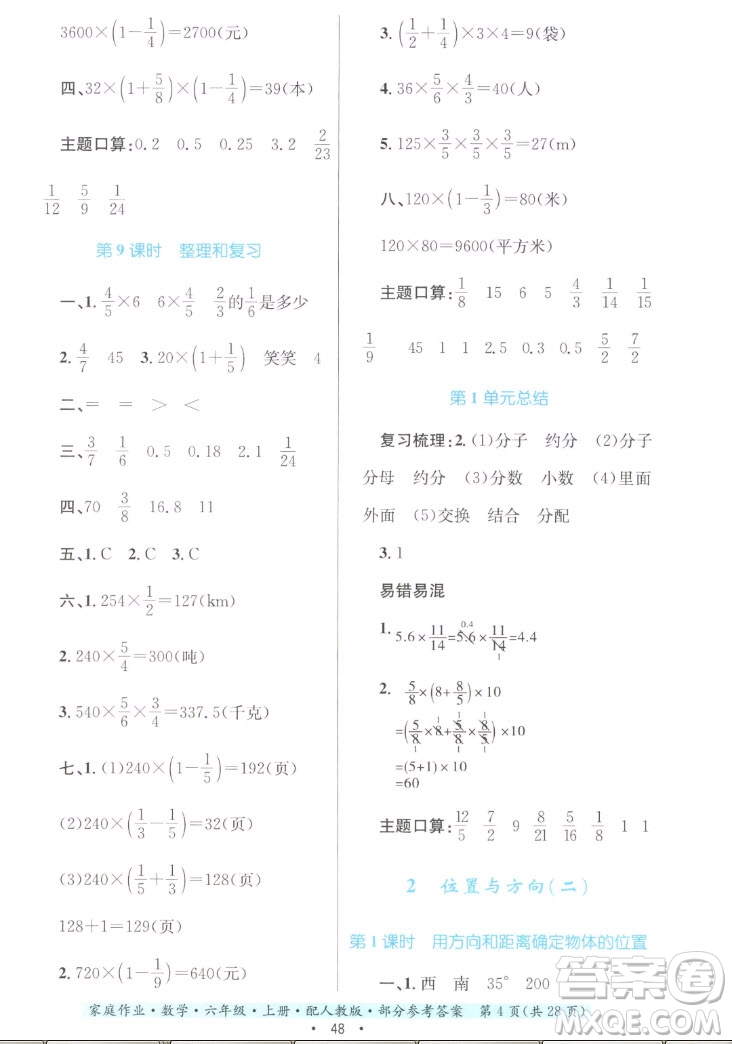 3600×(1-1/4)=2700(元)
四、32×(1+5/8)×(1-1/4)=39(本)
主题口算:0.2 0.5 0.25 3.2 2/23
1/12 5/9 1/24
第9课时 整理和复习
一、1. 4/5×6 6×4/5 2/3的1/6是多少
2. 4/7 45 3. 20×(1+1/5) 笑笑 4
二、= = > <
三、3/7 1/6 0.5 0.18 2.1 1/24
四、70 3/8 16.8 11
五、1. C 2. C 3. C
六、1. 254×1/2=127(km)
2. 240×5/4=300(吨)
3. 540×5/6×3/4=337.5(千克)
七、1. (1)240×(1-1/5)=192(页)
(2)240×(1/3-1/5)=32(页)
(3)240×(1/5+1/3)=128(页)
128+1=129(页)
2. 720×(1-1/9)=640(元)
3. (1/2+1/4)×3×4=9(袋)
4. 36×5/6×4/3=40(人)
5. 125×3/5×3/5=27(m)
八、120×(1-1/3)=80(米)
120×80=9600(平方米)
主题口算:1/8 15 6 5 4/3 1/14 1/15
1/9 45 1 1 2.5 0.3 5/2 7/2
第1单元总结
复习梳理:2. (1)分子 约分 (2)分子
分母 约分 (3)分数 小数 (4)里面
外面 (5)交换 结合 分配
3. 1
易错易混
1. 5.6×11/14=5.6×11/14=4.4
0.4
1
2. 5/8×(8+8/5)×10
=(5/8×8+5/8×8/5)×10
1 1 1
1 1 1
=(5+1)×10
=60
主题口算:12/5 7/2 9 8/21 5/16 1/8 1 1
2 位置与方向(二)
第1课时 用方向和距离确定物体的位置
一、1. 西 南 35° 200
家庭作业·数学·六年级·上册·配人教版·部分参考答案 第4页(共28页)
·48·
答案圈
MXQE.COM